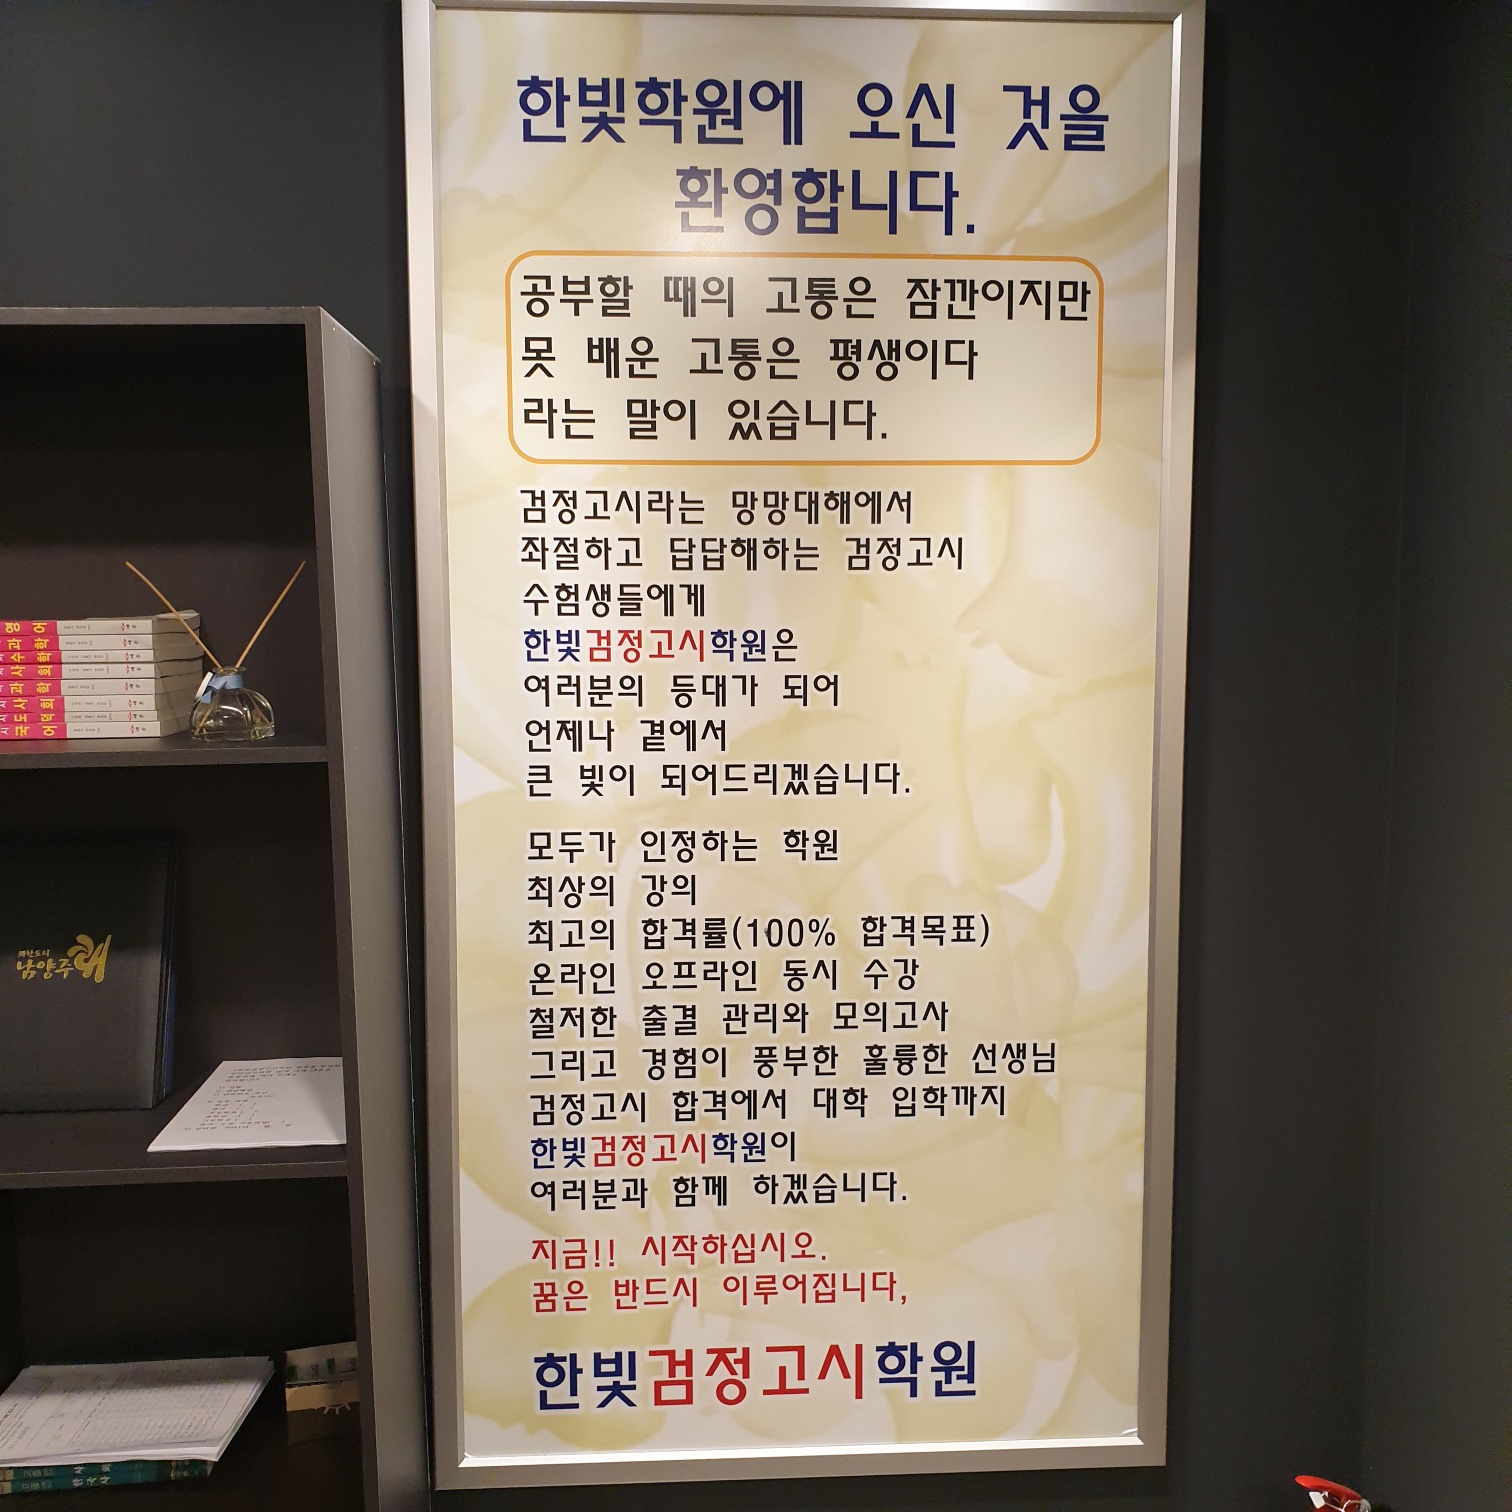 한빛학원에 오신 것을
환영합니다.
공부할 때의 고통은 잠깐이지만
못 배운 고통은 평생이다
라는 말이 있습니다.
검정고시라는 망망대해에서
좌절하고 답답해하는 검정고시
수험생들에게
한빛검정고시학원은
여러분의 등대가 되어
언제나 곁에서
큰 빛이 되어드리겠습니다.
모두가 인정하는 학원
최상의 강의
최고의 합격률(100% 합격목표)
온라인 오프라인 동시 수강
철저한 출결 관리와 모의고사
그리고 경험이 풍부한 훌륭한 선생님
검정고시 합격에서 대학 입학까지
한빛검정고시학원이
여러분과 함께 하겠습니다.
지금!! 시작하십시오.
꿈은 반드시 이루어집니다,
한빛검정고시학원
영어
과학
수학
사회
과학
사회
도덕
국어
남양주